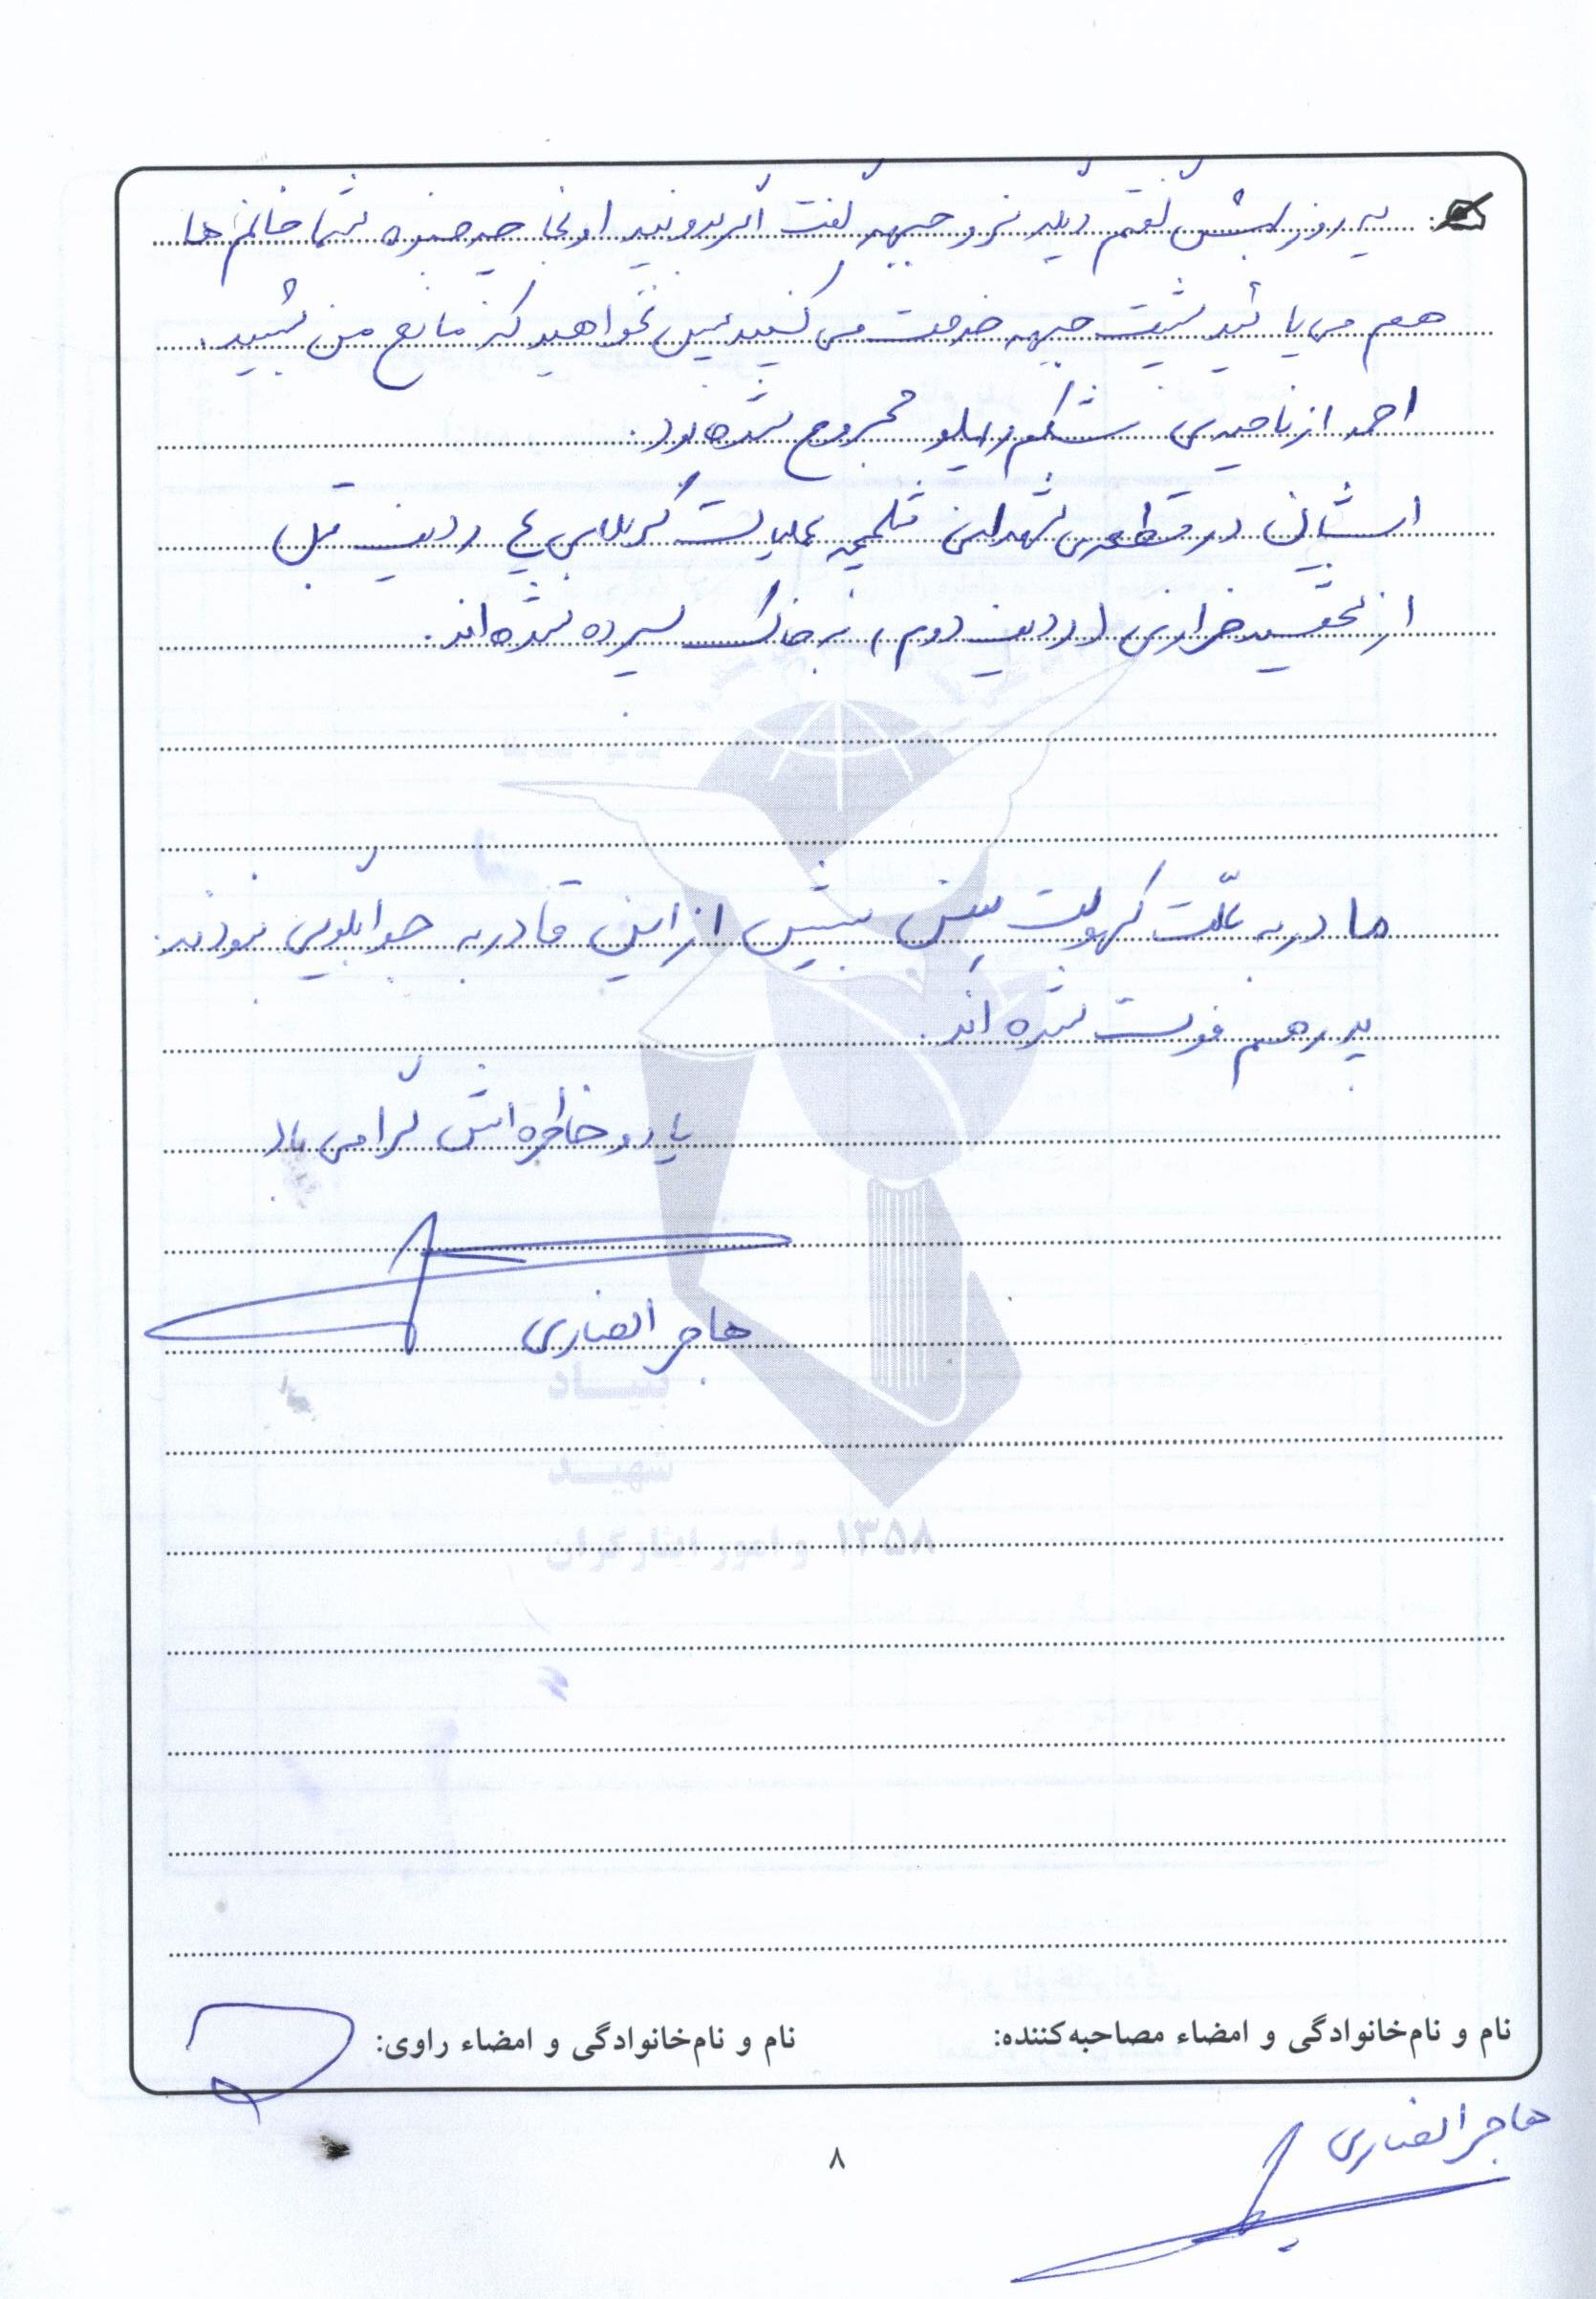 یه روز بهش گفتم دیگه نرو جبهه گفت اگر بدونید اونجا چه خبره شما خانم ها
هم می یا ئید پشت جبهه خدمت می کنید پس نخواهید که مانع من بشید.
احمد از ناحیه‌ی شکم و پهلو مجروح شده بود.
ایشان در قطعه‌ی شهدای شلمچه عملیات کربلای ۴ ردیف قبل
از شهید خرازی (ردیف دوم) به خاک سپرده شده اند.
مادر به علّت کهولت سن بیش از این قادر به جوابگویی نبودند.
پدر هم فوت شده اند.
یاد و خاطره اش گرامی باد
هاجر انصاری
بنیاد
شهید
و امور ایثارگران ۱۳۵۸
نام و نام‌خانوادگی و امضاء مصاحبه‌کننده: نام و نام‌خانوادگی و امضاء راوی:
هاجر انصاری
۸